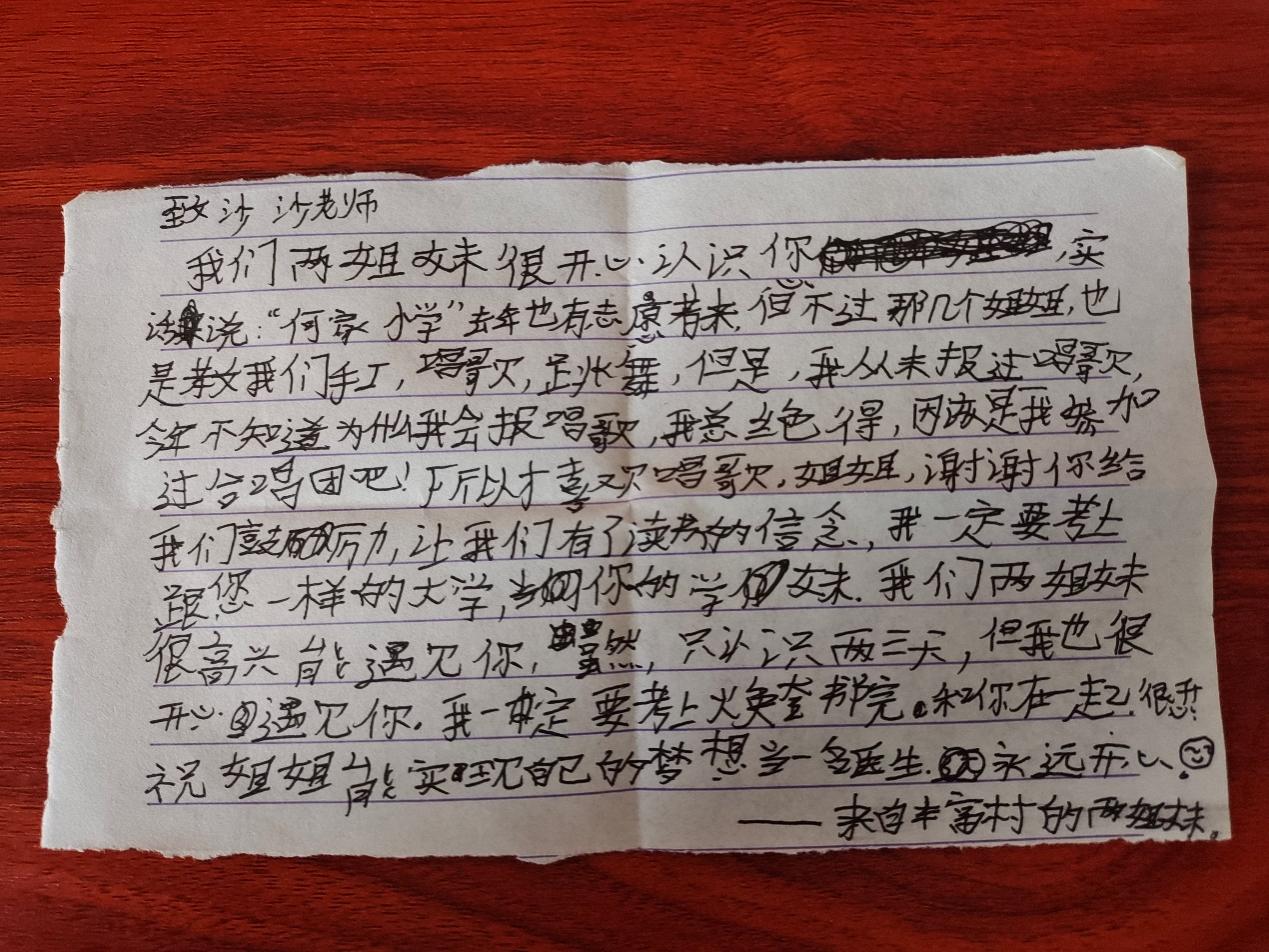 致沙沙老师
我们两姐妹很开心认识你,实
话说:“何家小学”去年也有志愿者来.但不过那几个姐姐,也
是教我们手工,唱歌,跳舞,但是,我从未报过唱歌,
今年不知道为什么我会报唱歌,我总觉得,因该是我参加
过合唱团吧!所以才喜欢唱歌.姐姐,谢谢你给
我们鼓励,让我们有了读书的信念,我一定要考上
跟您一样的大学,当你的学妹.我们两姐妹
很高兴能遇见你,虽然,只认识两三天,但我也很
开心遇见你.我一定要考上火奂奎书院。和你在一起.很开心!
祝姐姐能实现自己的梦想当一名医生.永远开心.
——来自丰富村的两姐妹.